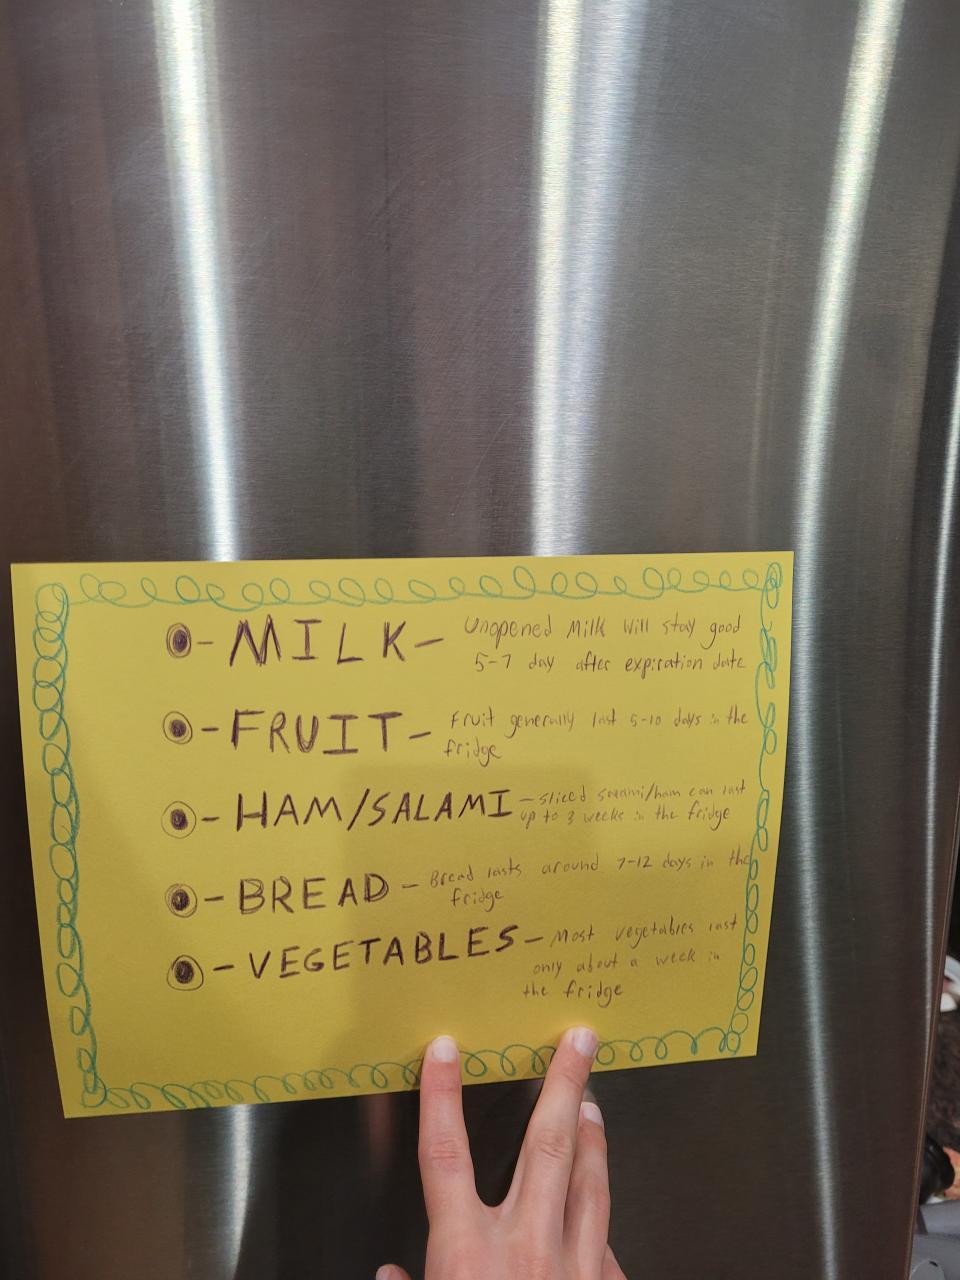 MILK- Unopened Milk will stay good
5-7 day after expiration date
FRUIT- Fruit generally last 5-10 days in the
fridge
HAM/SALAMI - sliced salami/ham can last
up to 3 weeks in the fridge
BREAD - Bread lasts around 7-12 days in the
fridge
VEGETABLES - Most vegetables last
only about a week in
the fridge